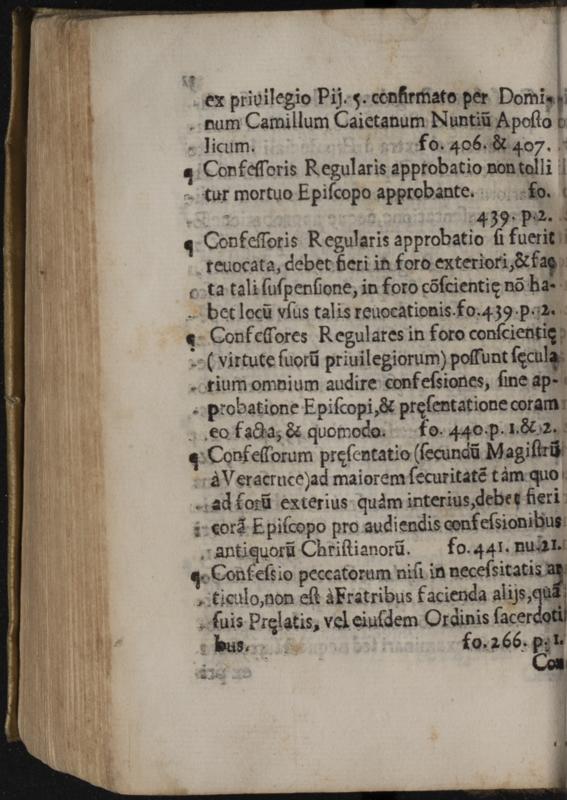 ex priuilegio Pij. 5. confirmato per Domi-
num Camillum Caietanum Nuntiũ Apoſto
licum. fo. 406. & 407.
¶ Confeſſoris Regularis approbatio non tolli
tur mortuo Epiſcopo approbante. fo.
439. p. 2.
¶ Confeſſoris Regularis approbatio ſi fuerit
reuocata, debet fieri in foro exteriori, & fac
ta tali ſuſpenſione, in foro cõſcientię nõ ha-
bet locũ vſus talis reuocationis. fo. 439. p. 2.
¶ Confeſſores Regulares in foro conſcientię
( virtute ſuorũ priuilegiorum) poſſunt ſęcula
rium omnium audire confeſsiones, ſine ap-
probatione Epiſcopi, & pręſentatione coram
eo facta, & quomodo. fo. 440. p. 1. & 2.
¶ Confeſſorum pręſentatio (ſecundũ Magiſtrũ
à Veracruce) ad maiorem ſecuritatẽ tàm quo
ad forũ exterius quàm interius, debet fieri
corã Epiſcopo pro audiendis confeſsionibus
antiquorũ Chriſtianorũ. fo. 441. nu. 21.
¶ Confeſsio peccatorum niſi in neceſsitatis ar
ticulo, non eſt à Fratribus facienda alijs, quã
ſuis Pręlatis, vel eiuſdem Ordinis ſacerdoti
bus. fo. 266. p. 1.
Con